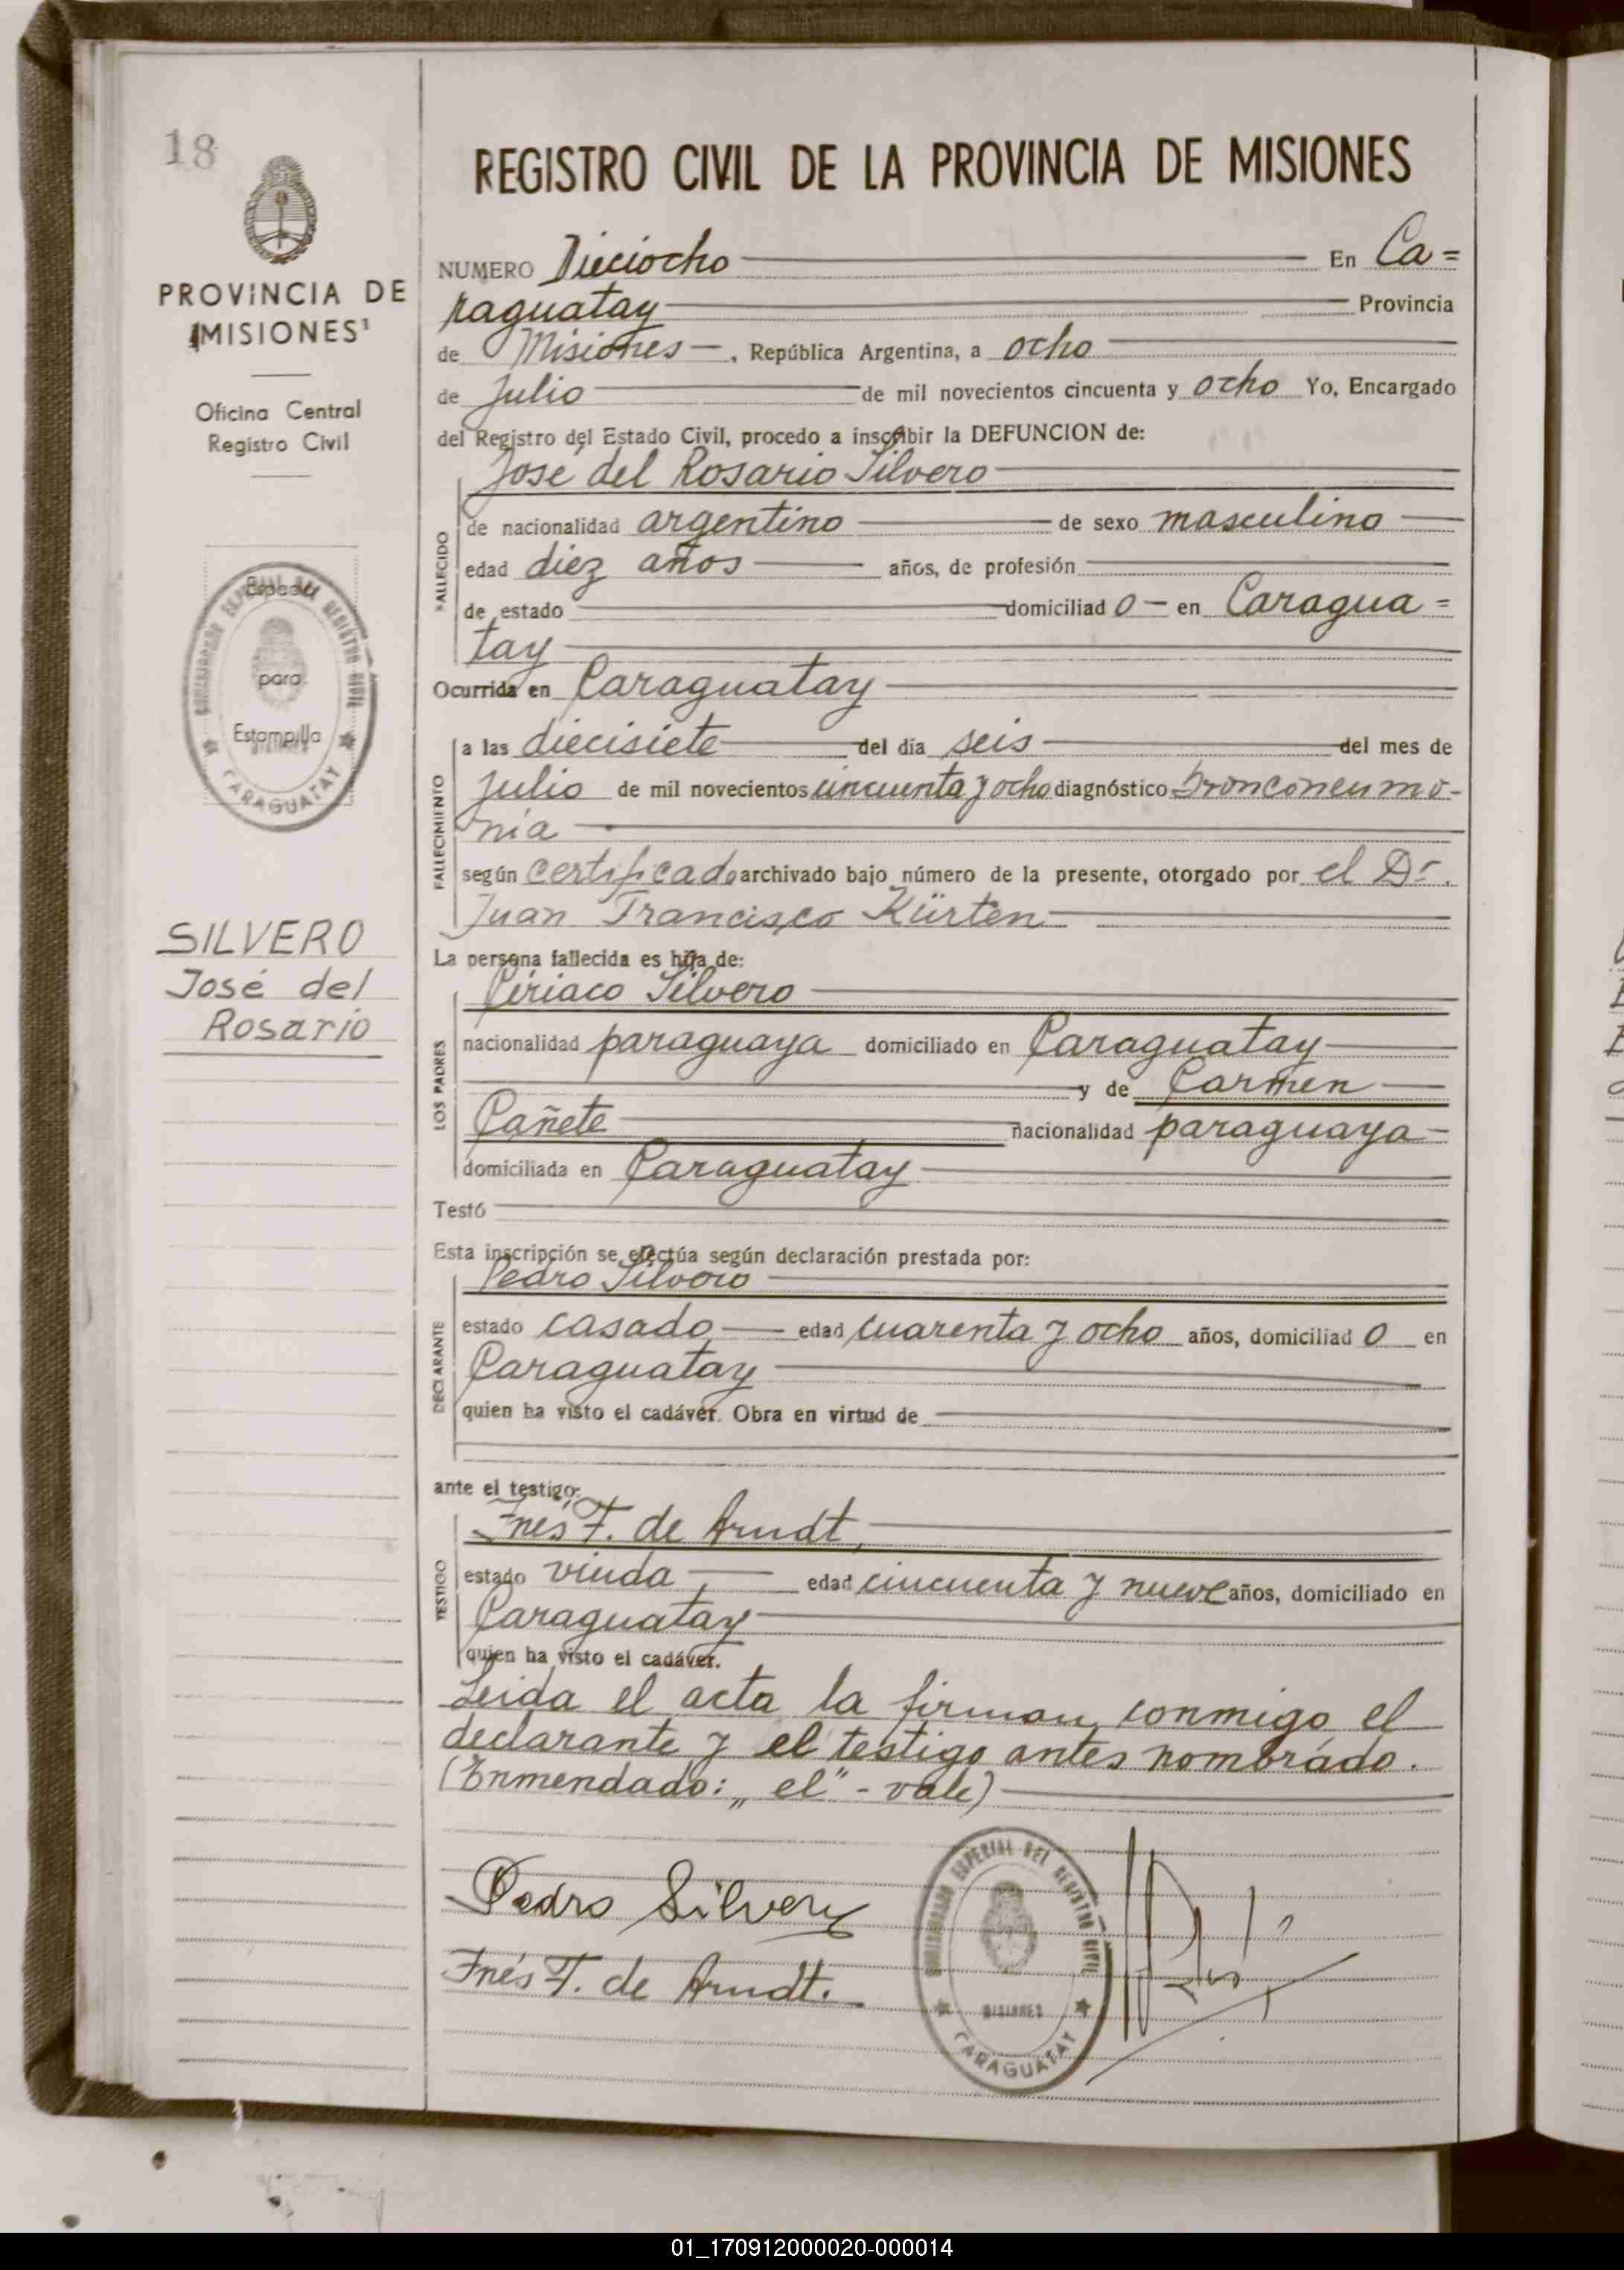 18
PROVINCIA DE
MISIONES
Oficina Central
Registro Civil
Espacio
para
Estampilla
MISIONES
CARAGUATAY
SILVERO
José del
Rosario
REGISTRO CIVIL DE LA PROVINCIA DE MISIONES
NUMERO Dieciocho En Ca=
raguatay Provincia
de Misiones, República Argentina, a ocho
de Julio de mil novecientos cincuenta y ocho Yo, Encargado
del Registro del Estado Civil, procedo a inscribir la DEFUNCION de:
José del Rosario Silvero
FALLECIDO
de nacionalidad argentino de sexo masculino
edad diez años años, de profesión
de estado domiciliado en Caragua=
tay
Ocurrida en Caraguatay
FALLECIMIENTO
a las diecisiete del día seis del mes de
Julio de mil novecientos cincuenta y ocho diagnóstico bronconeumo-
nía
según certificado archivado bajo número de la presente, otorgado por el Dr.
Juan Francisco Kürten
La persona fallecida es hija de:
LOS PADRES
Ciriaco Silvero
nacionalidad paraguaya domiciliado en Caraguatay
y de Carmen
Cañete nacionalidad paraguaya
domiciliada en Caraguatay
Testó
Esta inscripción se efectúa según declaración prestada por:
DECLARANTE
Pedro Silvero
estado casado edad cuarenta y ocho años, domiciliado en
Caraguatay
quien ha visto el cadáver. Obra en virtud de
ante el testigo:
TESTIGO
Inés T. de Arndt,
estado viuda, edad cincuenta y nueve años, domiciliado en
Caraguatay
quien ha visto el cadáver.
Leida el acta la firman conmigo el
declarante y el testigo antes nombrado.
(Enmendado: „el" - vale)
Pedro Silvero
Inés T. de Arndt.
ESPECIAL DEL REGISTRO CIVIL
MISIONES
CARAGUATAY
01_170912000020-000014